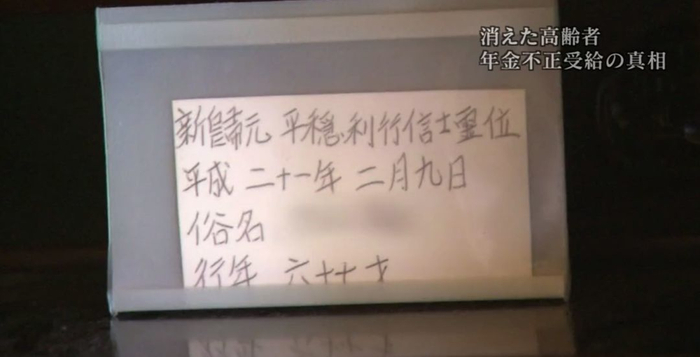 消えた高齢者
年金不正受給の真相
新歸元 平穏利行信士霊位
平成 二十一年 二月九日
俗名
行年 六十才